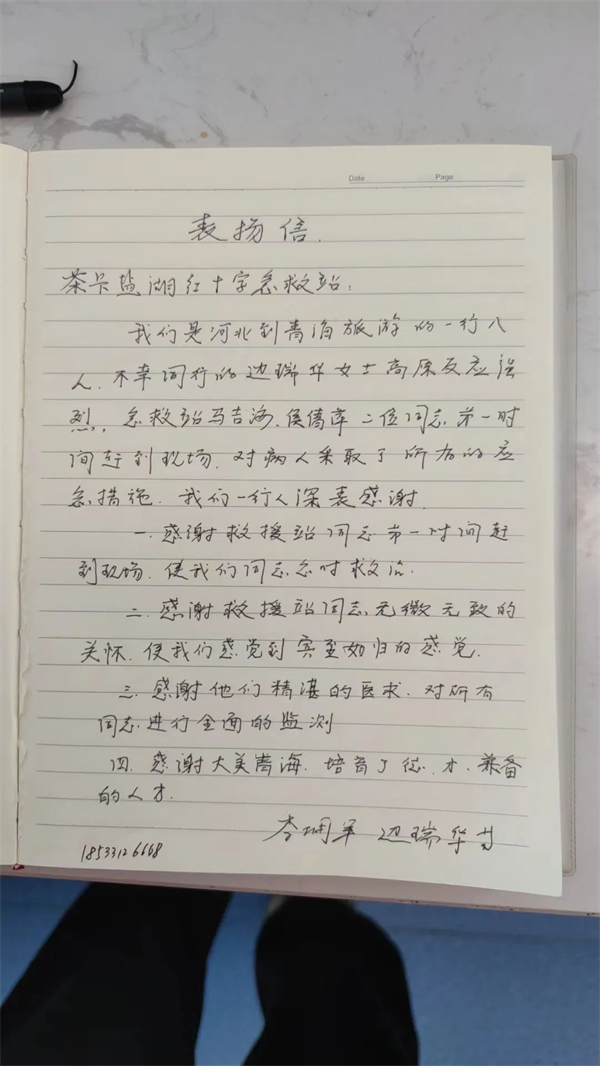 Date Page
表扬信.
茶卡盐湖红十字急救站:
我们是河北到青海旅游的一行八
人.不幸同行的边瑞华女士高原反应强
烈,急救站马吉海.侯倩萍二位同志第一时
间赶到现场.对病人采取了所有的应
急措施.我们一行人深表感谢.
一.感谢救援站同志第一时间赶
到现场.使我们同志及时救治.
二.感谢救援站同志无微无致的
关怀.使我们感觉到宾至如归的感觉.
三.感谢他们精湛的医术.对所有
同志进行全面的监测
四.感谢大美青海.培育了德.才.兼备
的人才.
李 军 边瑞华
18533126668